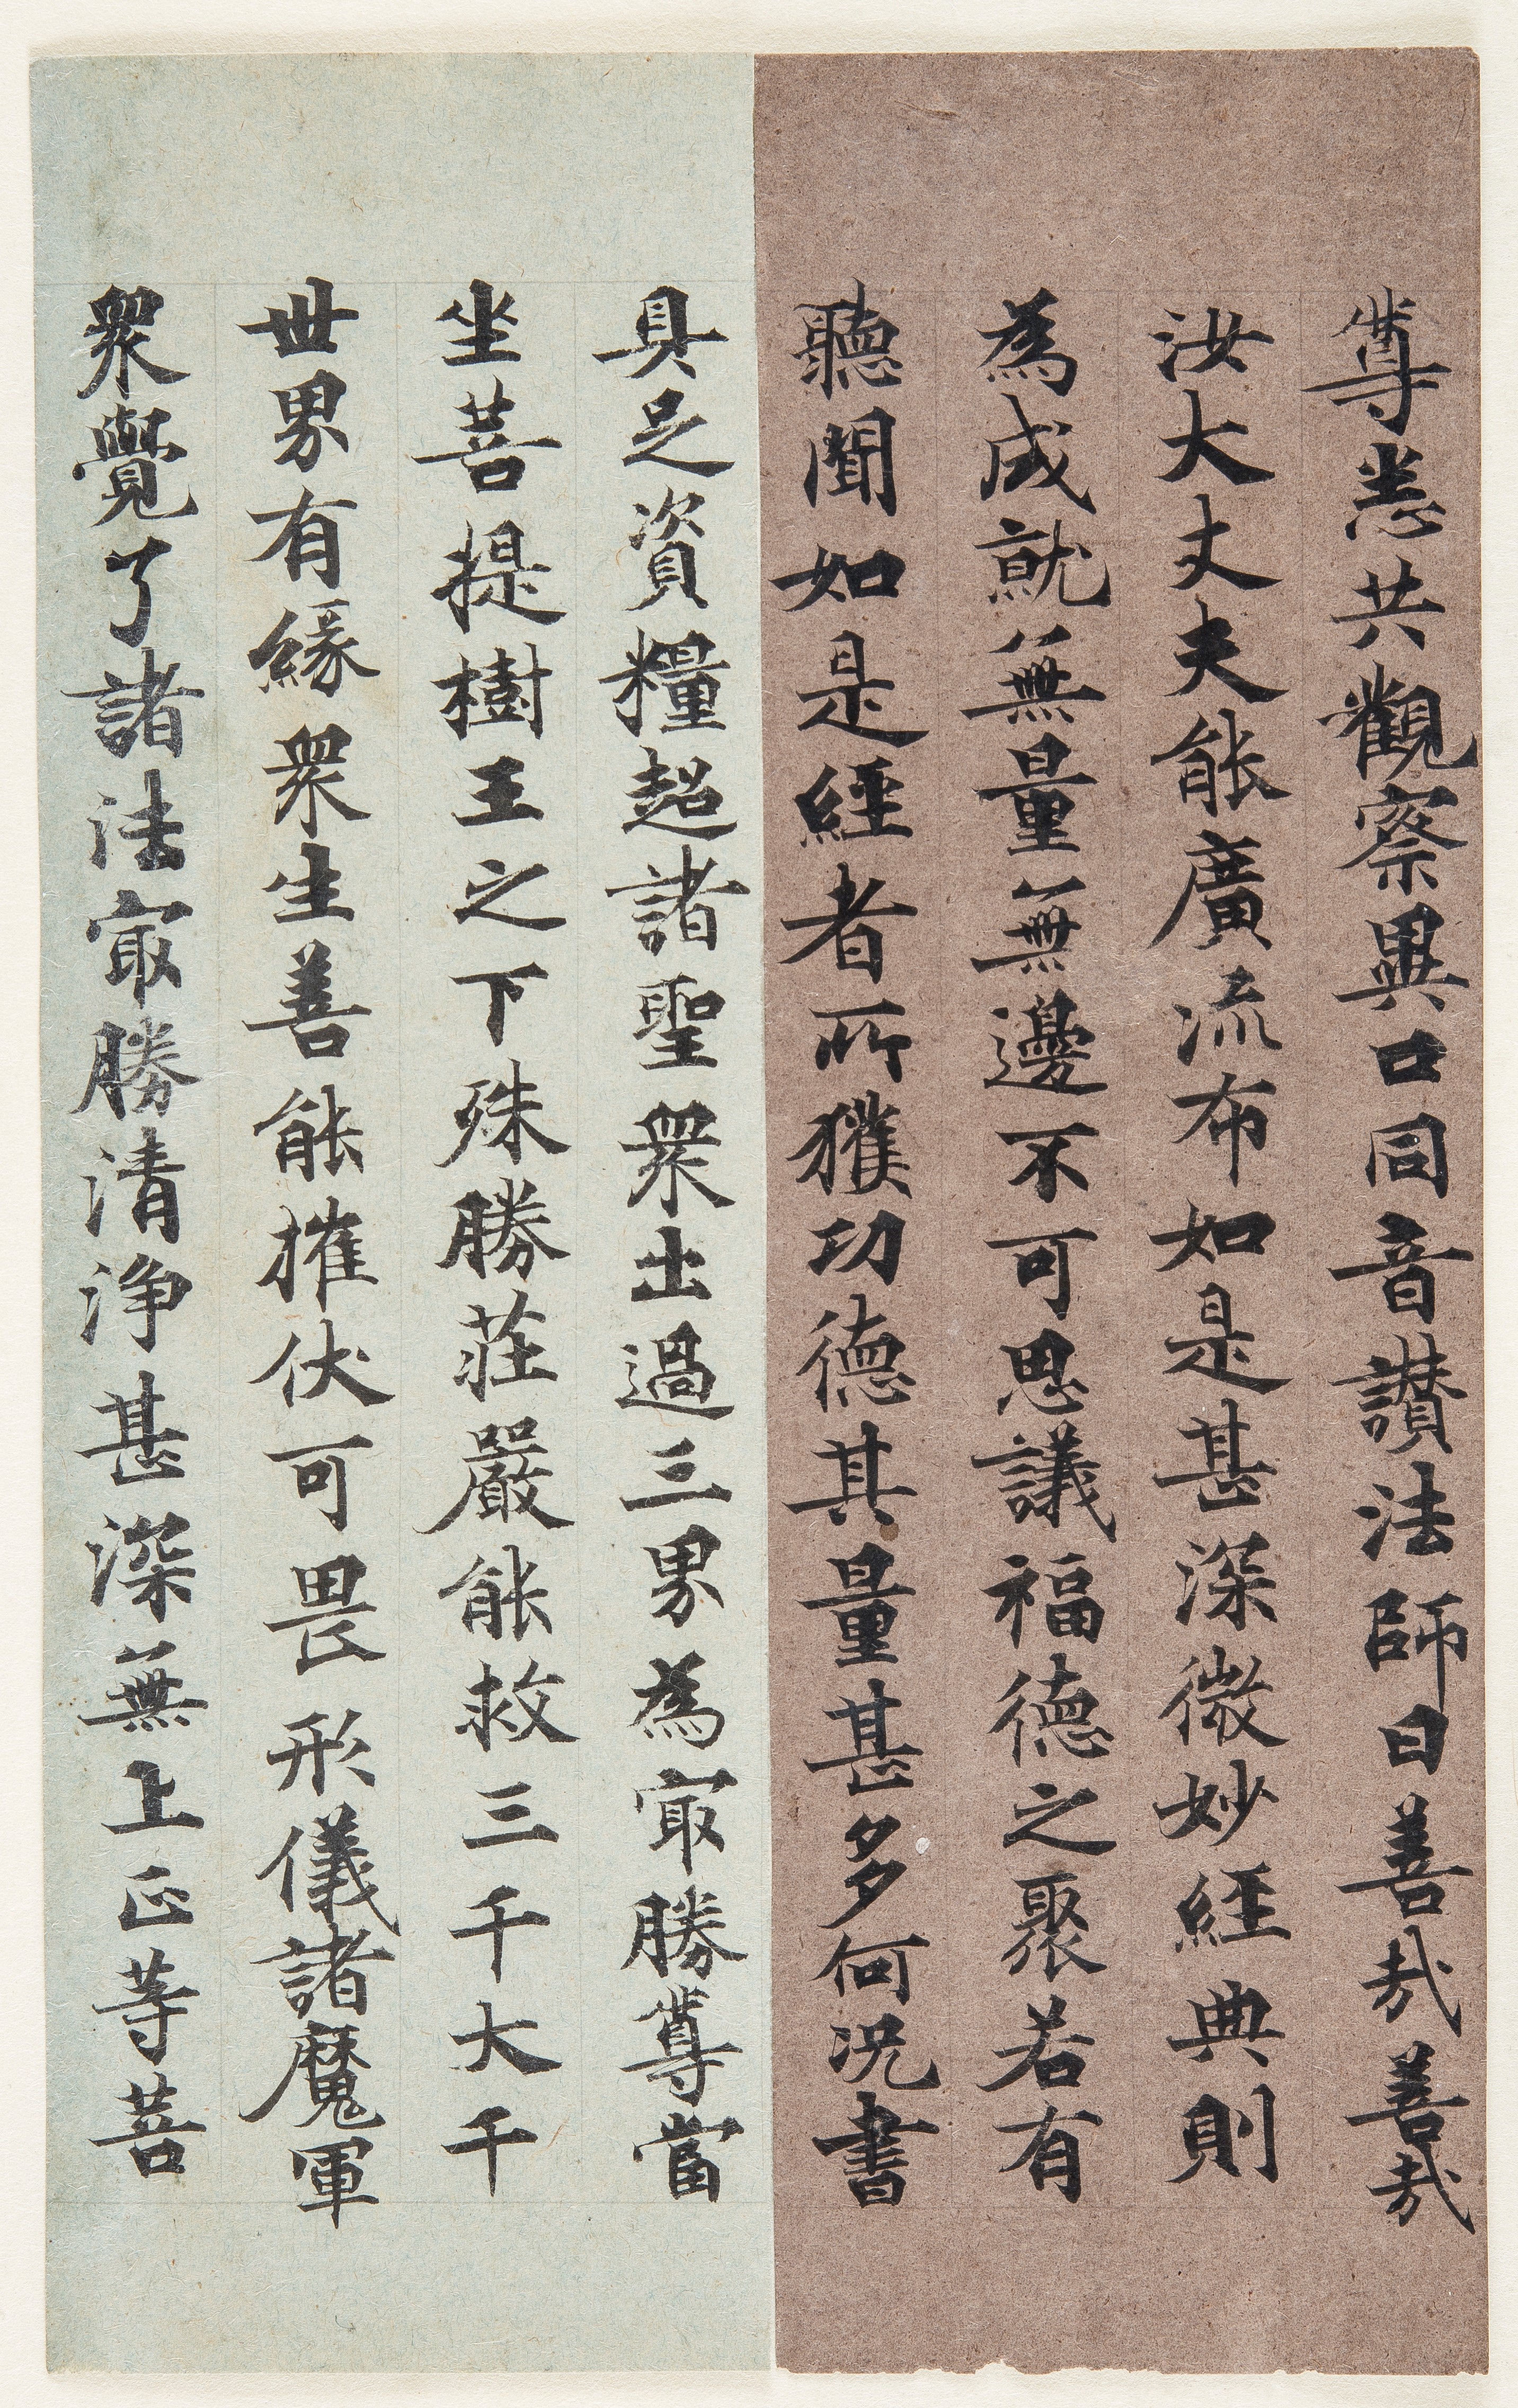 尊悉共觀察異口同音讃法師曰善哉善哉
汝大丈夫能廣流布如是甚深微妙經典則
為成就無量無邊不可思議福德之聚若有
聽聞如是經者所獲功德其量甚多何況書
具足資糧超諸聖衆出過三界為冣勝尊當
坐菩提樹王之下殊勝莊嚴能救三千大千
世界有緣衆生善能摧伏可畏形儀諸魔軍
衆覺了諸法冣勝清浄甚深無上正等菩